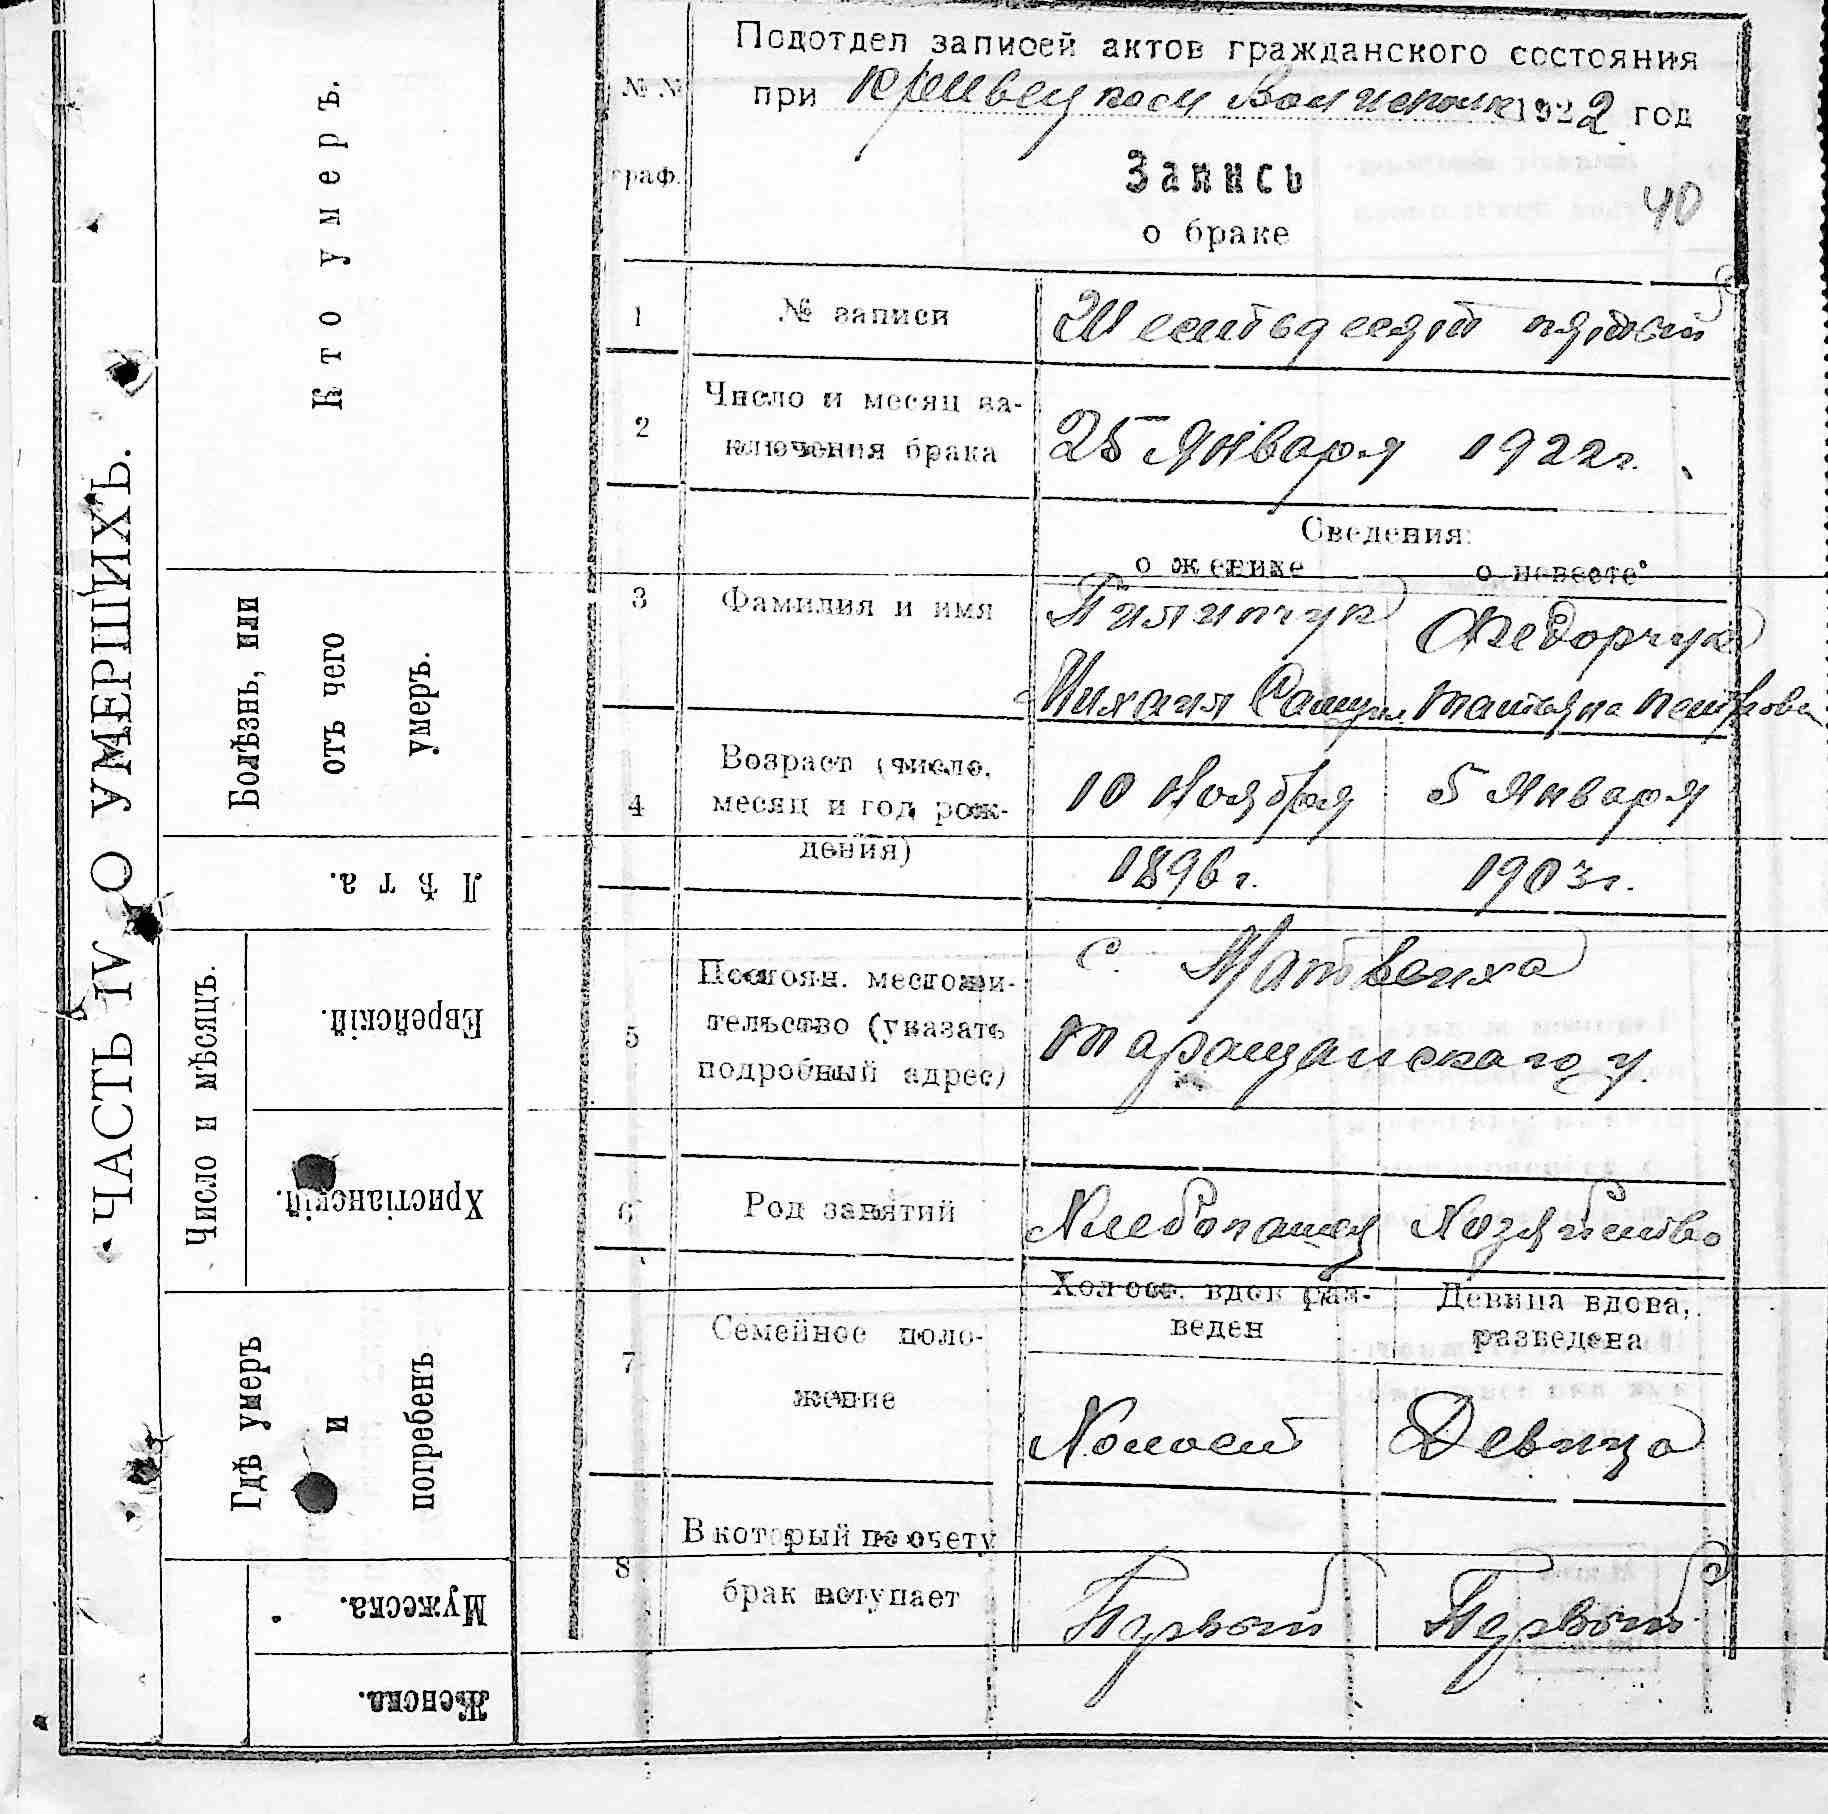 ЧАСТЬ IV О УМЕРШИХЪ.
Кто умеръ.
Болѣзнь, или
отъ чего
умеръ.
Лѣта.
Число и мѣсяцъ.
Еврейскій.
Христіанскій.
Гдѣ умеръ
и
погребенъ
Мужеска.
Женска.
Подотдел записей актов гражданского состояния
№№ при Кривецком Волисполк 1922 год
граф. Запись
40
о браке
1 № записи Шестьдесят пятый
2 Число и месяц за-
ключения брака 25 Января 1922 г.
Сведения:
о женихе о невесте
3 Фамилия и имя Пилипчук Федорчук
Михаил Самуил. Татьяна Петрова
4 Возраст (число, месяц и год рож-дения) 10 Ноября 5 Января
1896 г. 1903 г.
5 Постоян. местожи- с. Матвеиха
тельство (указать Таращанского у.
подробный адрес)
6 Род занятий Хлебопашец Хозяйство
Холост. вдов раз- Девица вдова,
веден разведена
7 Семейное поло-
жение Холост Девица
8 В который по счету
брак вступает Первый Первый